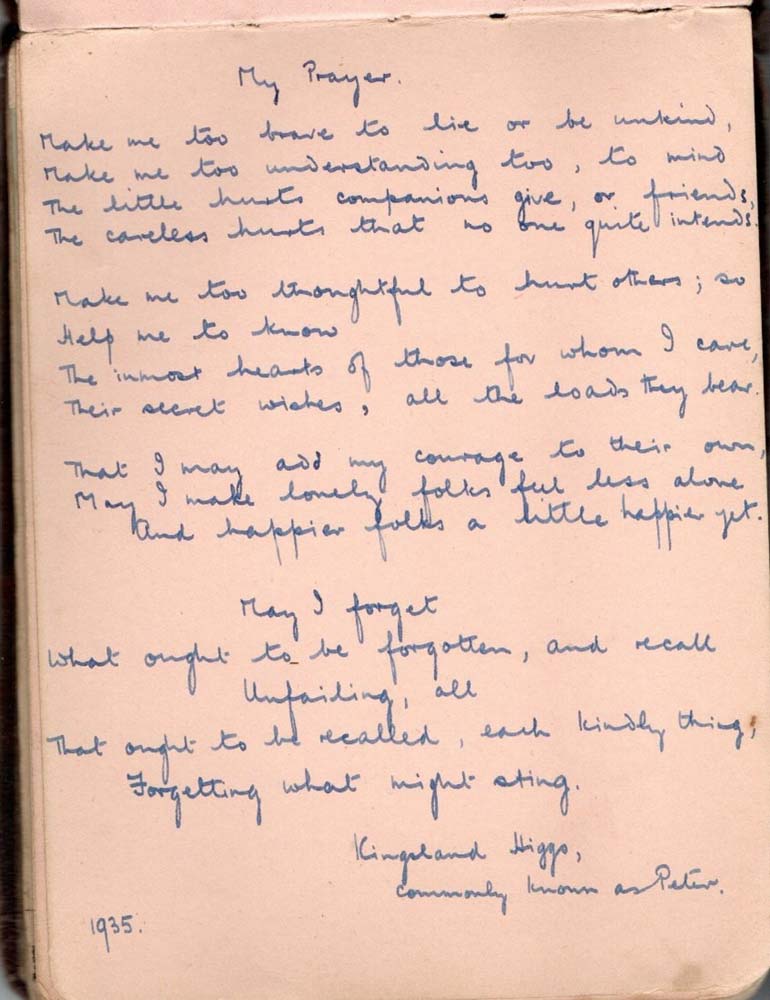 My Prayer.
Make me too brave to lie or be unkind,
Make me too understanding too, to mind
The little hurts companions give, or friends,
The careless hurts that no one quite intends.
Make me too thoughtful to hurt others; so
Help me to know
The inmost hearts of those for whom I care,
Their secret wishes, all the loads they bear.
That I may add my courage to their own,
May I make lonely folks feel less alone
And happier folks a little happier yet.
May I forget
What ought to be forgotten, and recall
Unfailing, all
That ought to be recalled, each kindly thing,
Forgetting what might sting.
Kingsland Higgs,
commonly known as Peter.
1935.